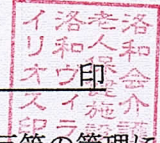 洛和会介護
老人保健施設
洛和ヴィラ
イリオス印
印
等の管理に